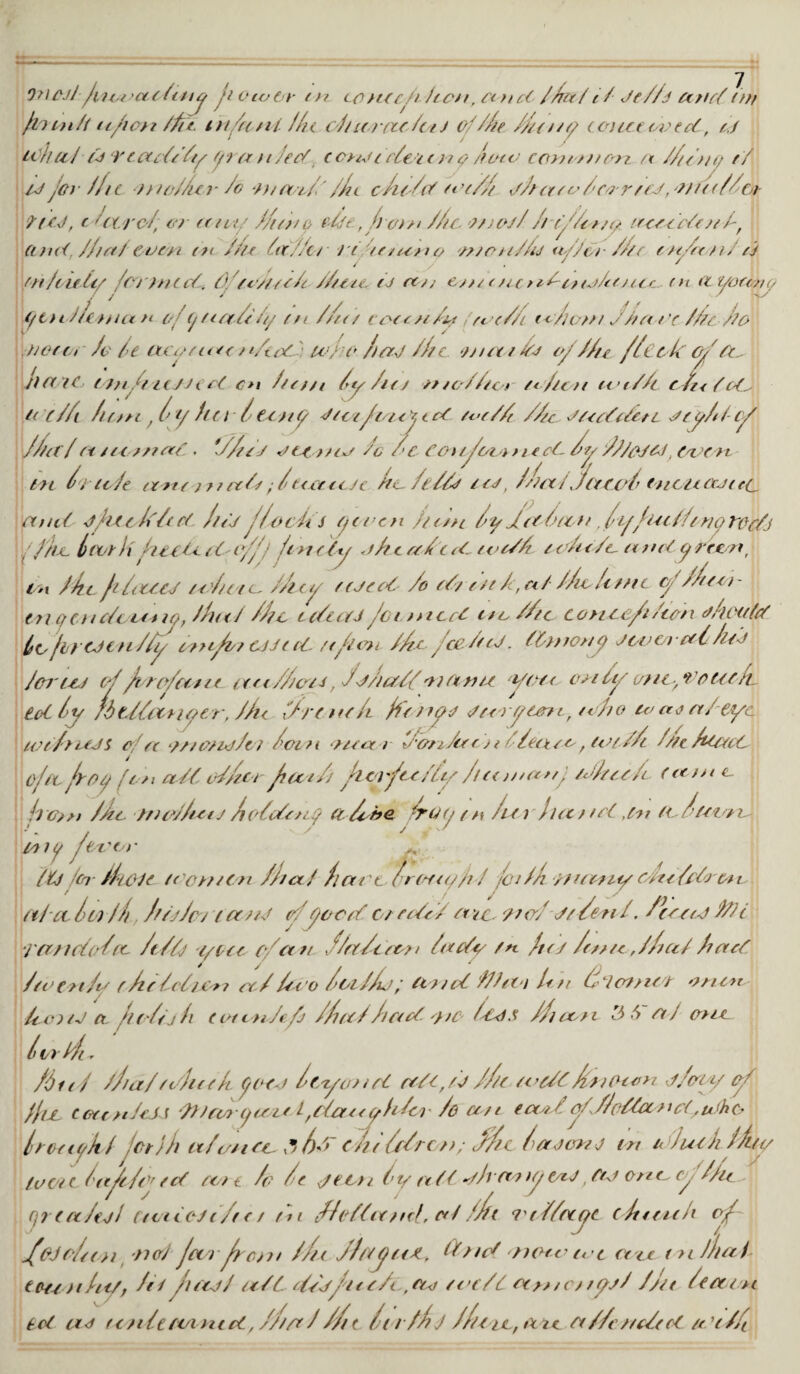 7
most prevailing power in conception, and that it sells and im
prints upon the infant the characters of the thing conceived, is
what is readily granted, considering how common a thing it
is for the mother to mark the child with strawberries, mulber
ries, claret, or any thing else, from the most trifling accident,
and that even in the latter ripening months after the infant is
intirely formed. Of which there is an eminent instance in a young
gentleman of quality in this country (with whom I have the ho
nour to be acquainted) who has the marks of the fleck of a
hare impressed on him by his mother when with child
with him, by her being surprized with the sudden sight of
that animal. This seems to be confirmed by Moses, even
in brute animals; because he tells us, that Jacob encreased
and speckled his flocks given him by Laban, by putting rods
(the bark peeled off) finely streaked with white and green,
in the places where they used to drink, at the time of their
engendering, that the ideas formed in the conception should
be presently impressed upon the fœtus. Among several his
tories of profane authors, I shall name you only one, vouch
ed by Bellanger, the French Kings surgeon, who was at eye
witness of a monster born near Fontainbleau, with the head
of a frog (in all other parts perfectly human) which came
from the mothers holding a live frog in her hand, in a burn
ing fever
As for those women that have brought forth many children
at a birth, historians of good credit are not silent. Picus Mi
randola tells you of an Italian lady in his time, that had
twenty children at two births; and Martin Cromer men
tions a polish countess that had no less than 35 at one
birth.
But that which goes beyond all, is the well known story of
the countess Margaret, daughter to an earl of Holland, who
brought forth at once 365 children; The basons in which they
were baptized are to be seen by all strangers, as one of the
greatest curiosities in Holland, at the village church of
Losdun, not far from the Hague. And now we are in that
country, its past all dispute, as well amongst the learn
ed as unlearned, that the births there, are attended with